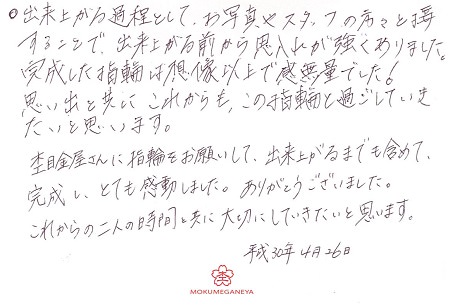 ◎出来上がる過程として、お写真やスタッフの方々と接
することで、出来上がる前から思入れが強くありました。
完成した指輪は想像以上で感無量でした!
思い出と共に これからも、この指輪と過ごしていき
たいと思います。
杢目金屋さんに指輪をお願いして、出来上がるまでも含めて、
完成し、とても感動しました。ありがとうございました。
これからの二人の時間と共に大切にしていきたいと思います。
平成30年4月26日
MOKUMEGANEYA